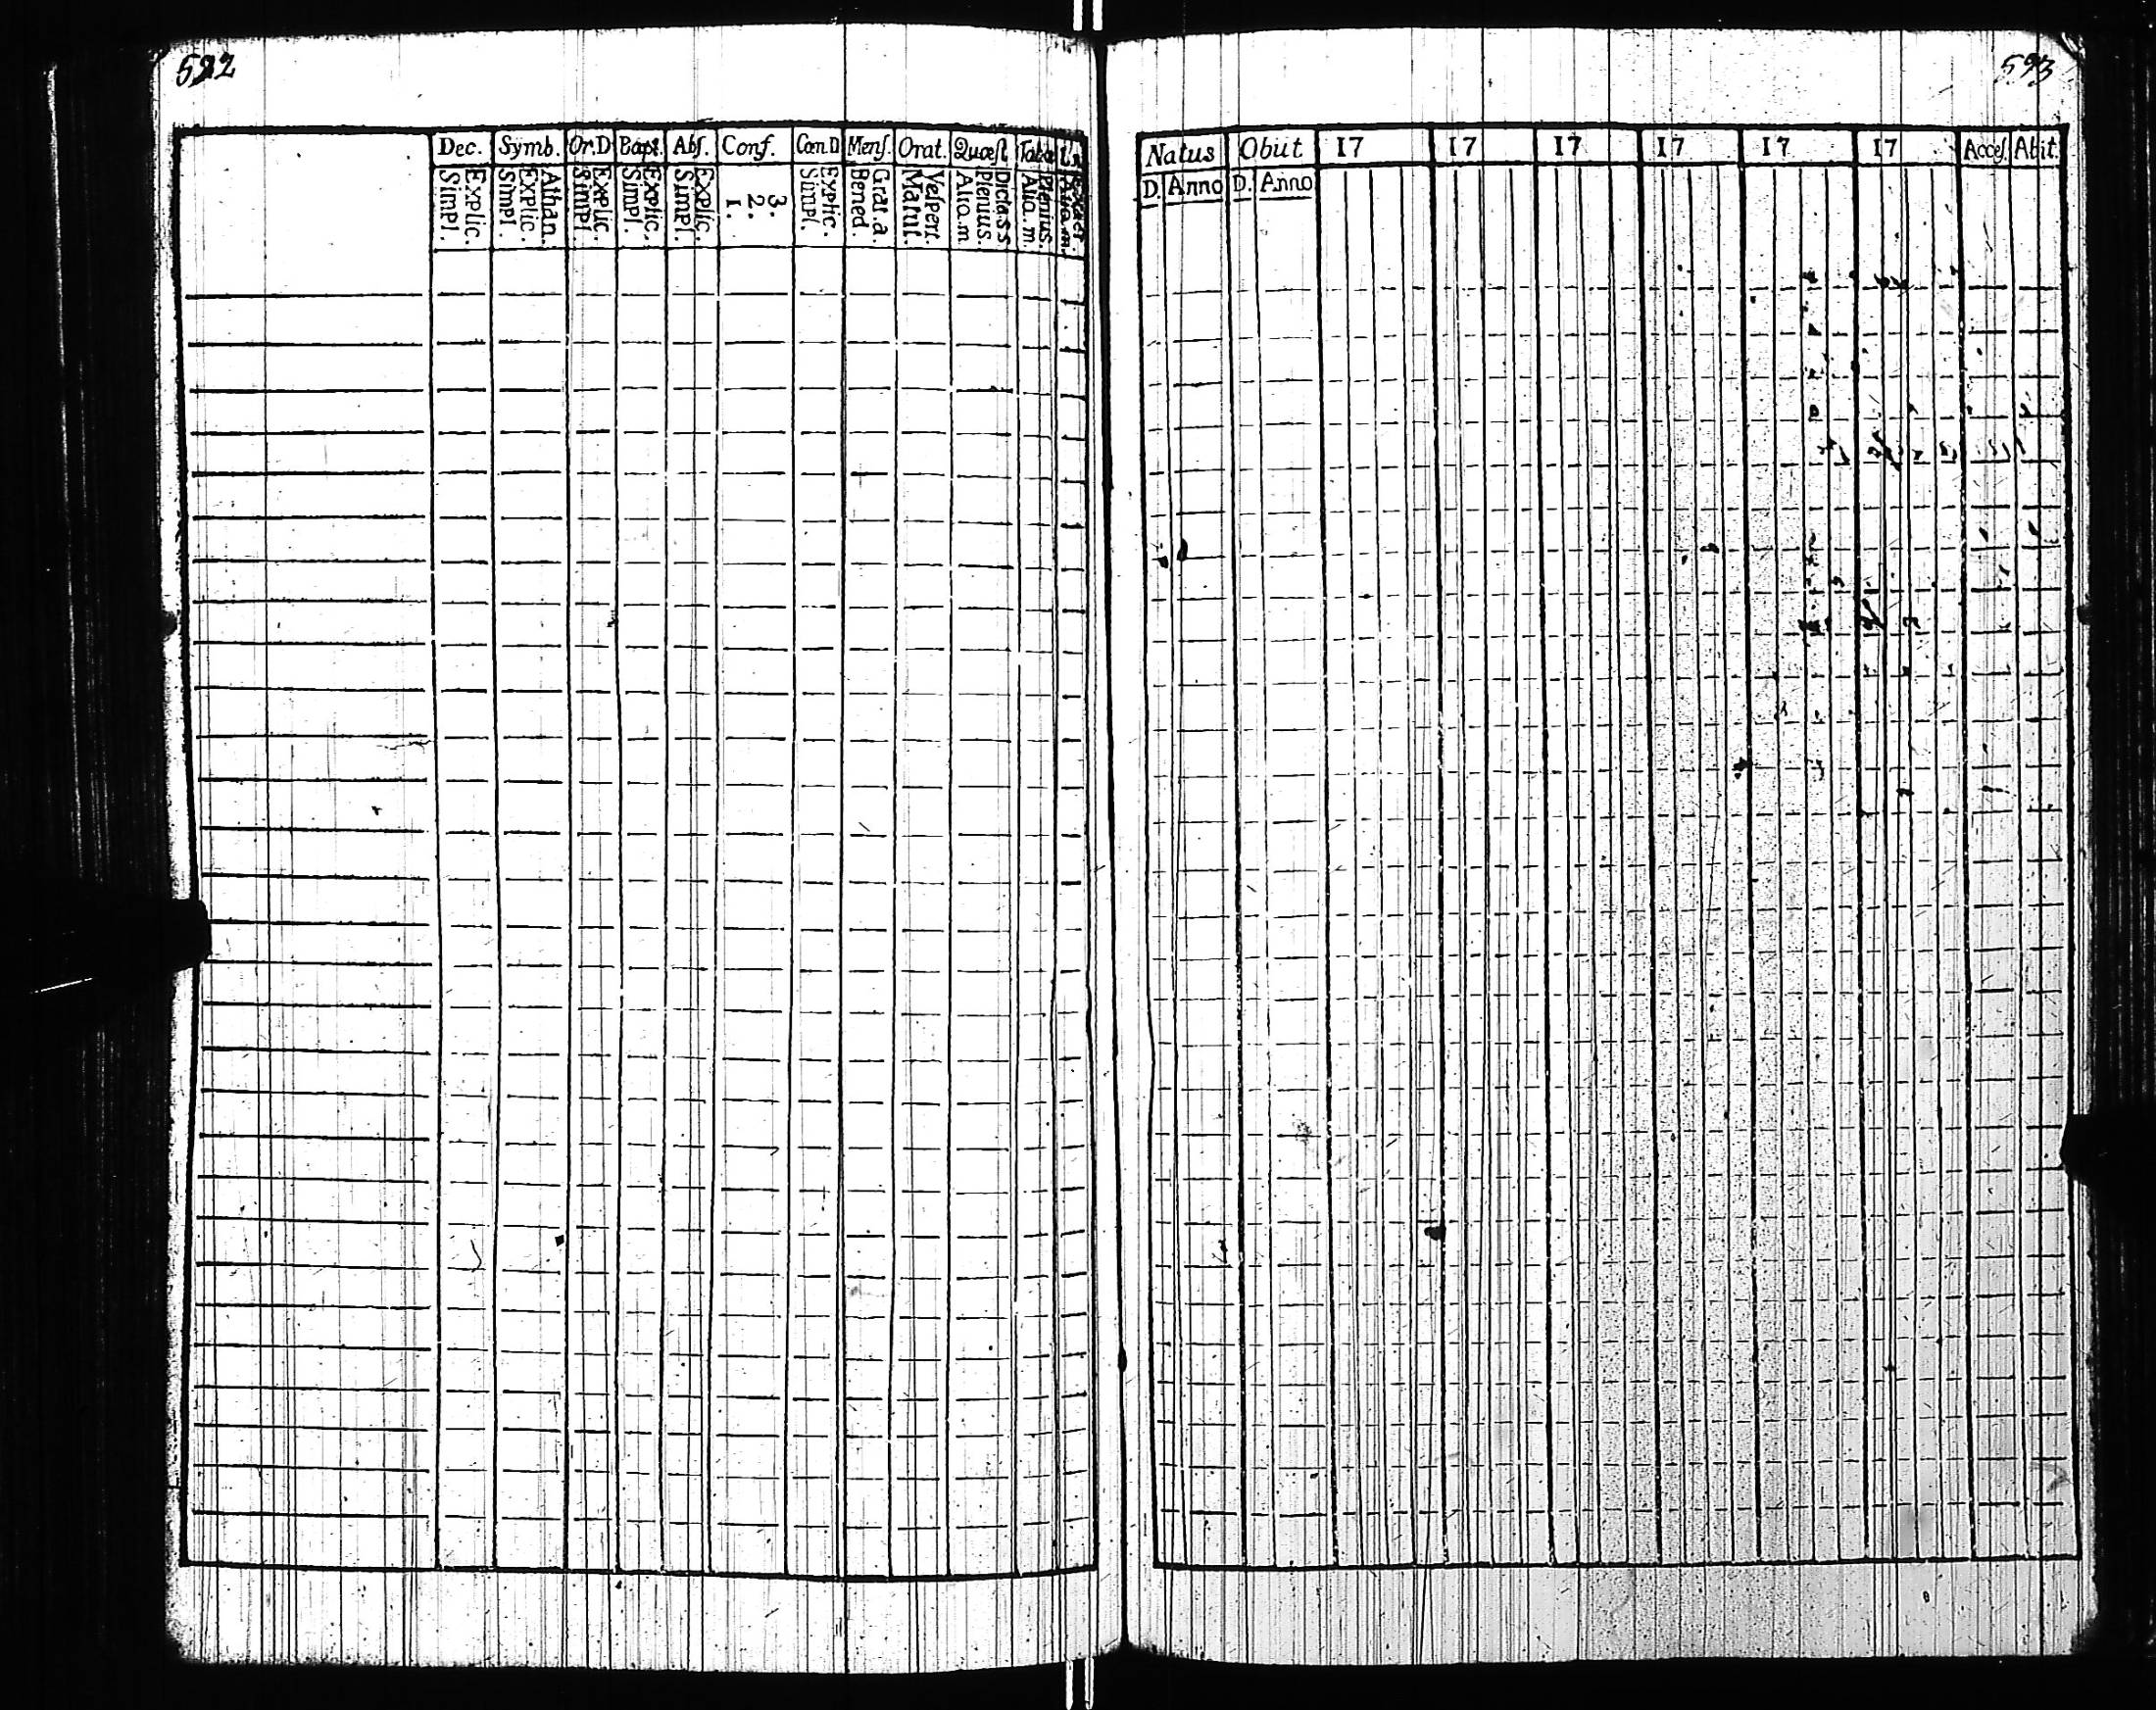 522
593
Dec. Symb. Or.D Bapt. Abſ. Conf. Cœn.D Menſ. Orat. Quæſt Tabæ
Explic. Simpl. Athan. Explic. Simpl. Explic. Simpl. Explic. Simpl. Explic. Simpl. 3. 2. 1. Explic. Simpl. Grat. a. Bened. Veſpert. Matut. Dicta.S.S Plenius. Aliq.m. Plenius. Aliq.m.
Natus Obiit 17 17 17 17 17 17 Acceſ. Abit.
D. Anno D. Anno